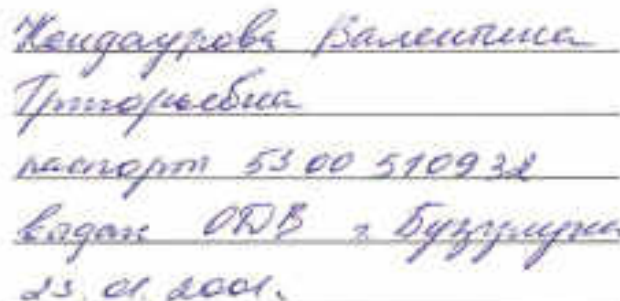 Кондаурова Валентина
Григорьевна
паспорт 5300 510932
выдан ОВД г. Бузулука
23.01.2001.